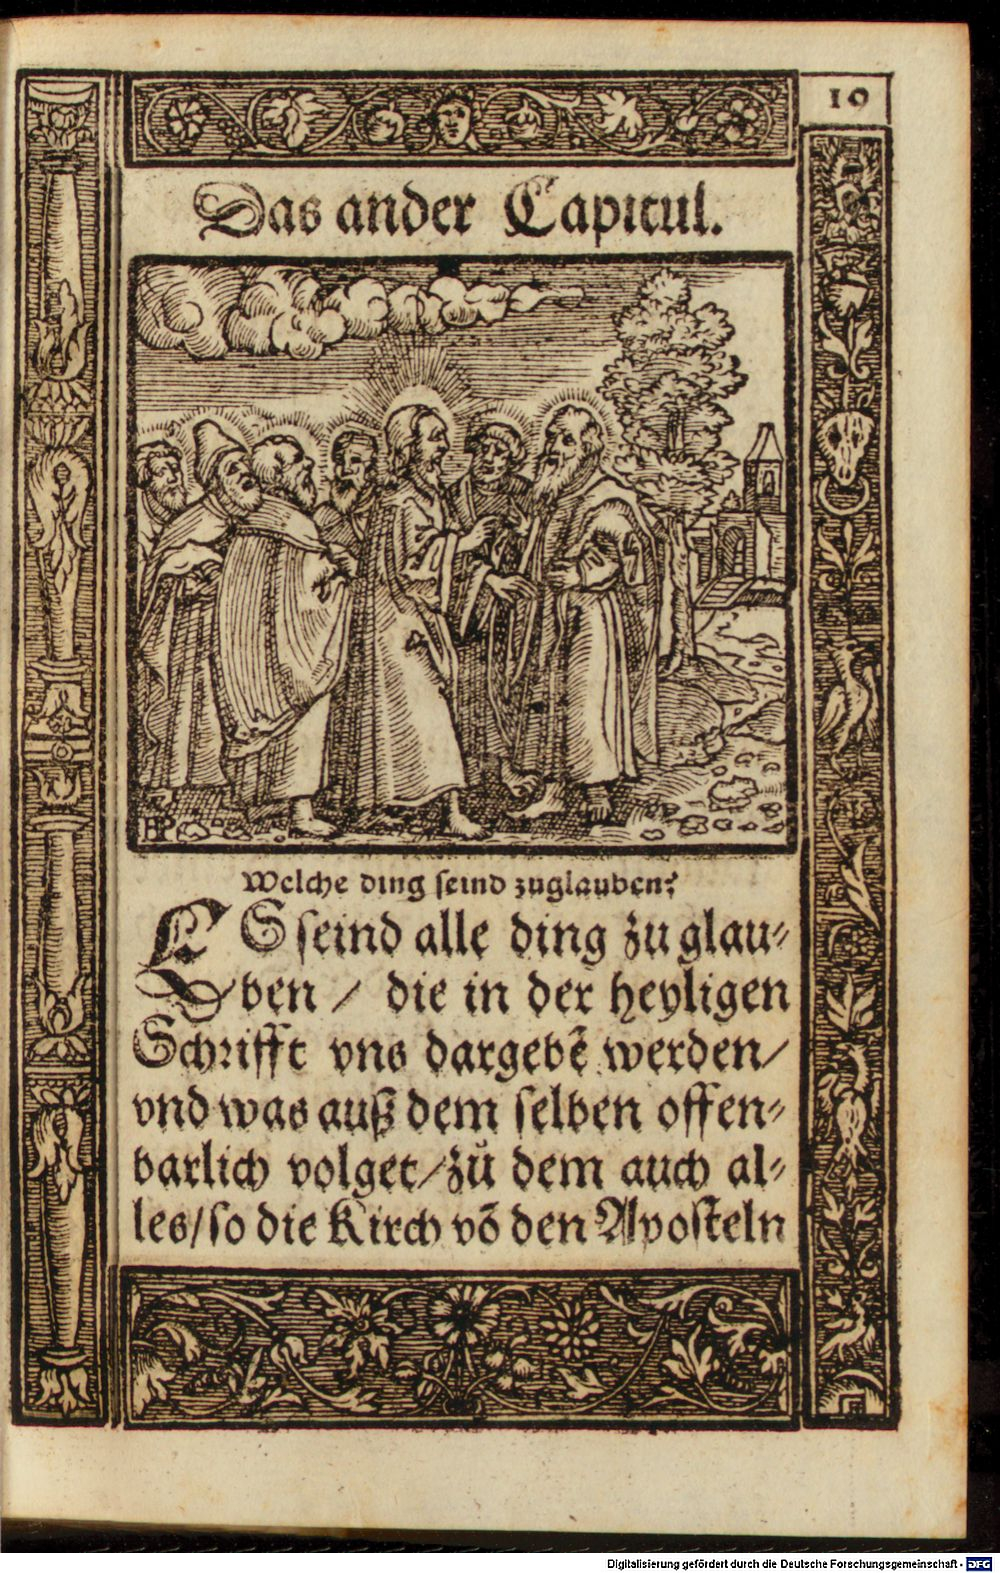 19
Das ander Capitul.
HP
Welche ding seind zuglauben?
ES seind alle ding zu glau⸗
ben / die in der heyligen
Schrifft vns dargebẽ werden/
vnd was auß dem selben offen⸗
barlich volget/zů dem auch al⸗
les/so die Kirch võ den Aposteln
Digitalisierung gefördert durch die Deutsche Forschungsgemeinschaft - DFG